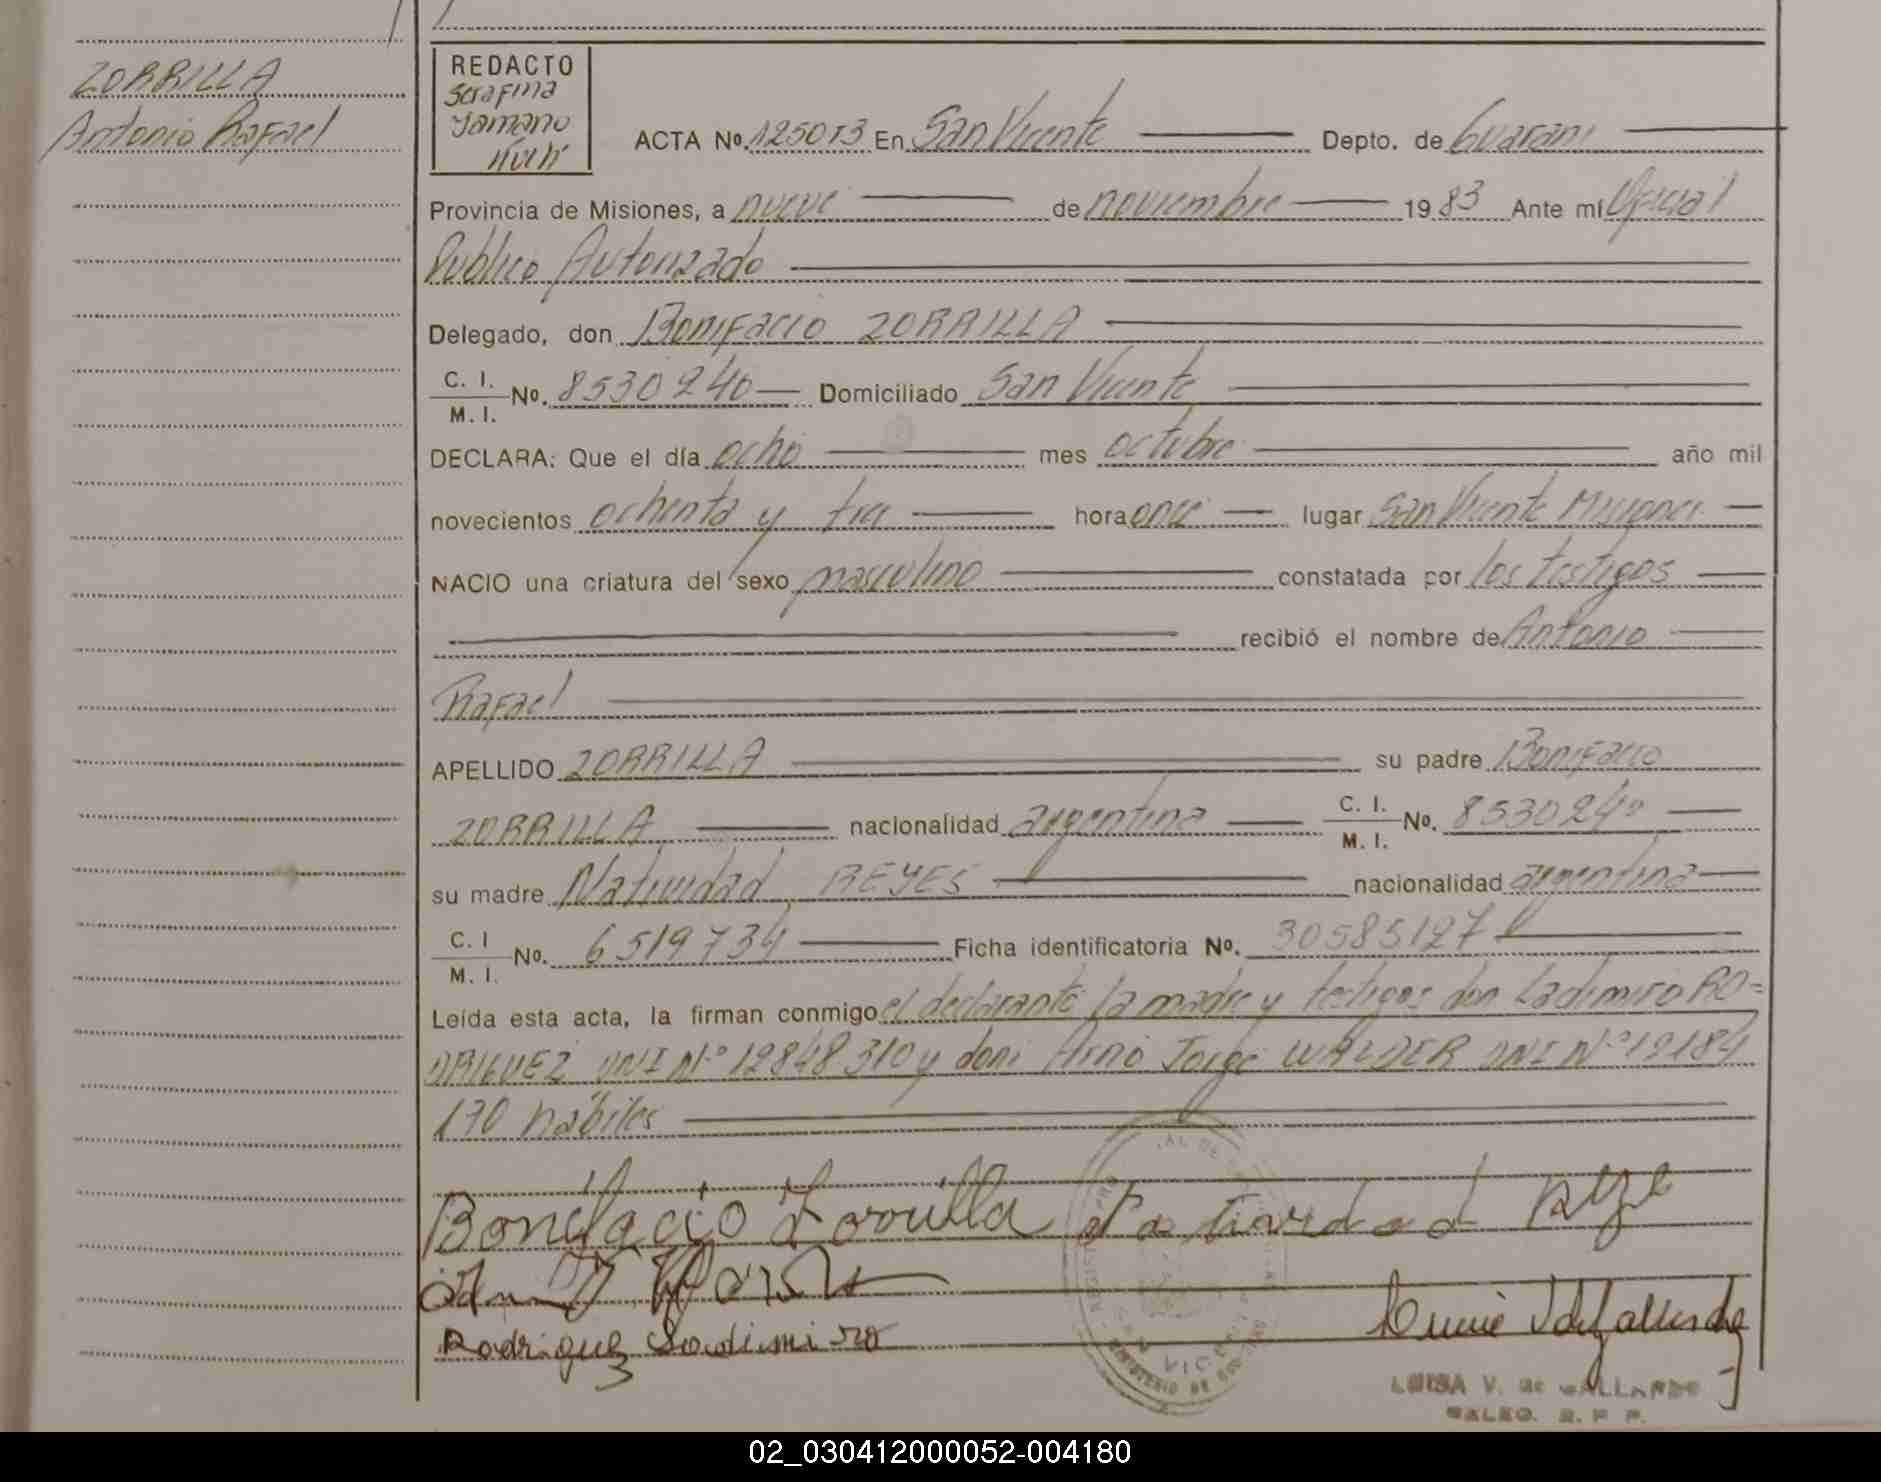 ZORRILLA
Antonio Rafael
REDACTO
Serafina
ACTA No. 125013 En San Vicente Depto. de Guarani
Provincia de Misiones, a nueve de noviembre 1983 Ante mí Oficial
Publico Autorizado
Delegado, don Bonifacio ZORRILLA
C. I. M. I. No. 8530240 Domiciliado San Vicente
DECLARA: Que el día ocho mes octubre año mil
novecientos ochenta y tres hora once lugar San Vicente Misiones
NACIO una criatura del sexo masculino constatada por los testigos
recibió el nombre de Antonio
Rafael
APELLIDO ZORRILLA su padre Bonifacio
ZORRILLA nacionalidad argentina C. I. M. I. No. 8530240
su madre Natividad REYES nacionalidad argentina
C. I M. I. No. 6519734 Ficha identificatoria No. 30585127
Leída esta acta, la firman conmigo el declarante la madre y testigos don Ladimiro RO=
DRIGUEZ DNI Nº 12848310 y don Arno Jorge WALDER DNI Nº 12184
170 hábiles
Bonifacio Zorrilla Natividad Reye
Rodriguez Ladimiro
LUISA V. de GALLARDO
02_030412000052-004180